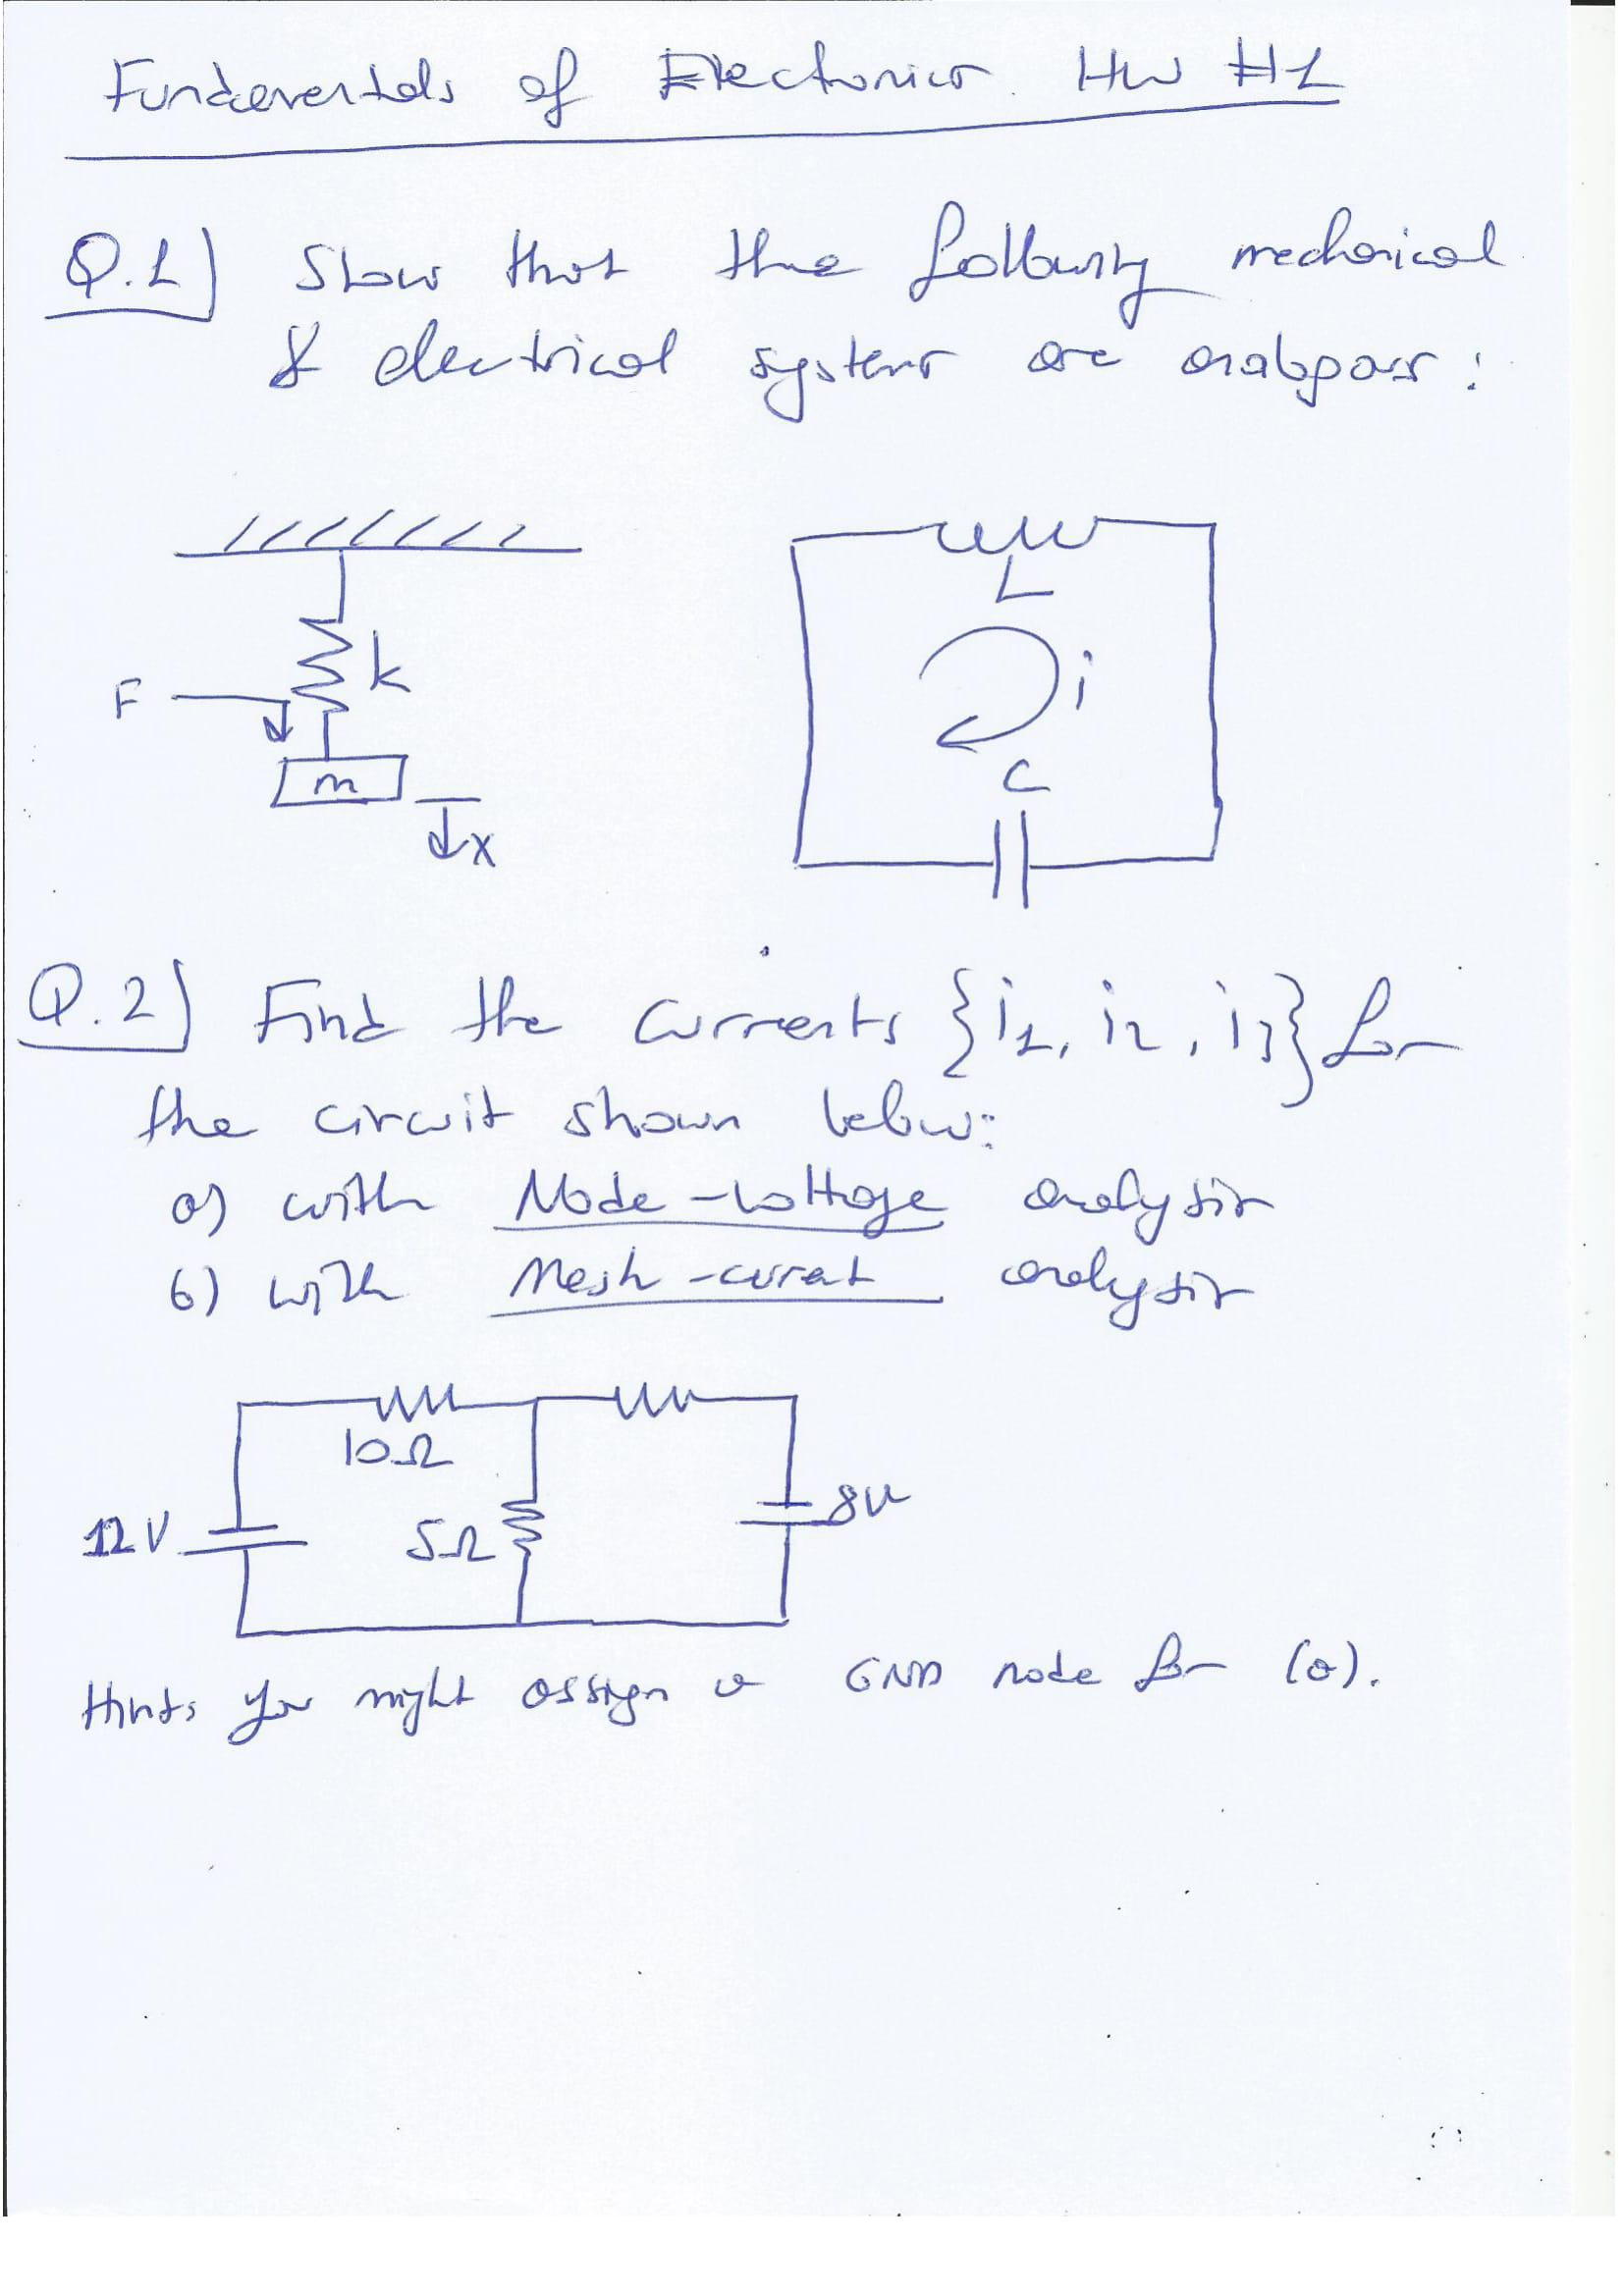 Fundamentals of Electronics HW #1
Q.1) Show that the following mechanical
& electrical systems are analogous:
k
F
m
x
L
i
C
Q.2) Find the currents {i1, i2, i3} for
the circuit shown below:
a) with Node-voltage analysis
b) with Mesh-current analysis
10Ω
12V
5Ω
8V
Hint: you might assign a GND node for (a).